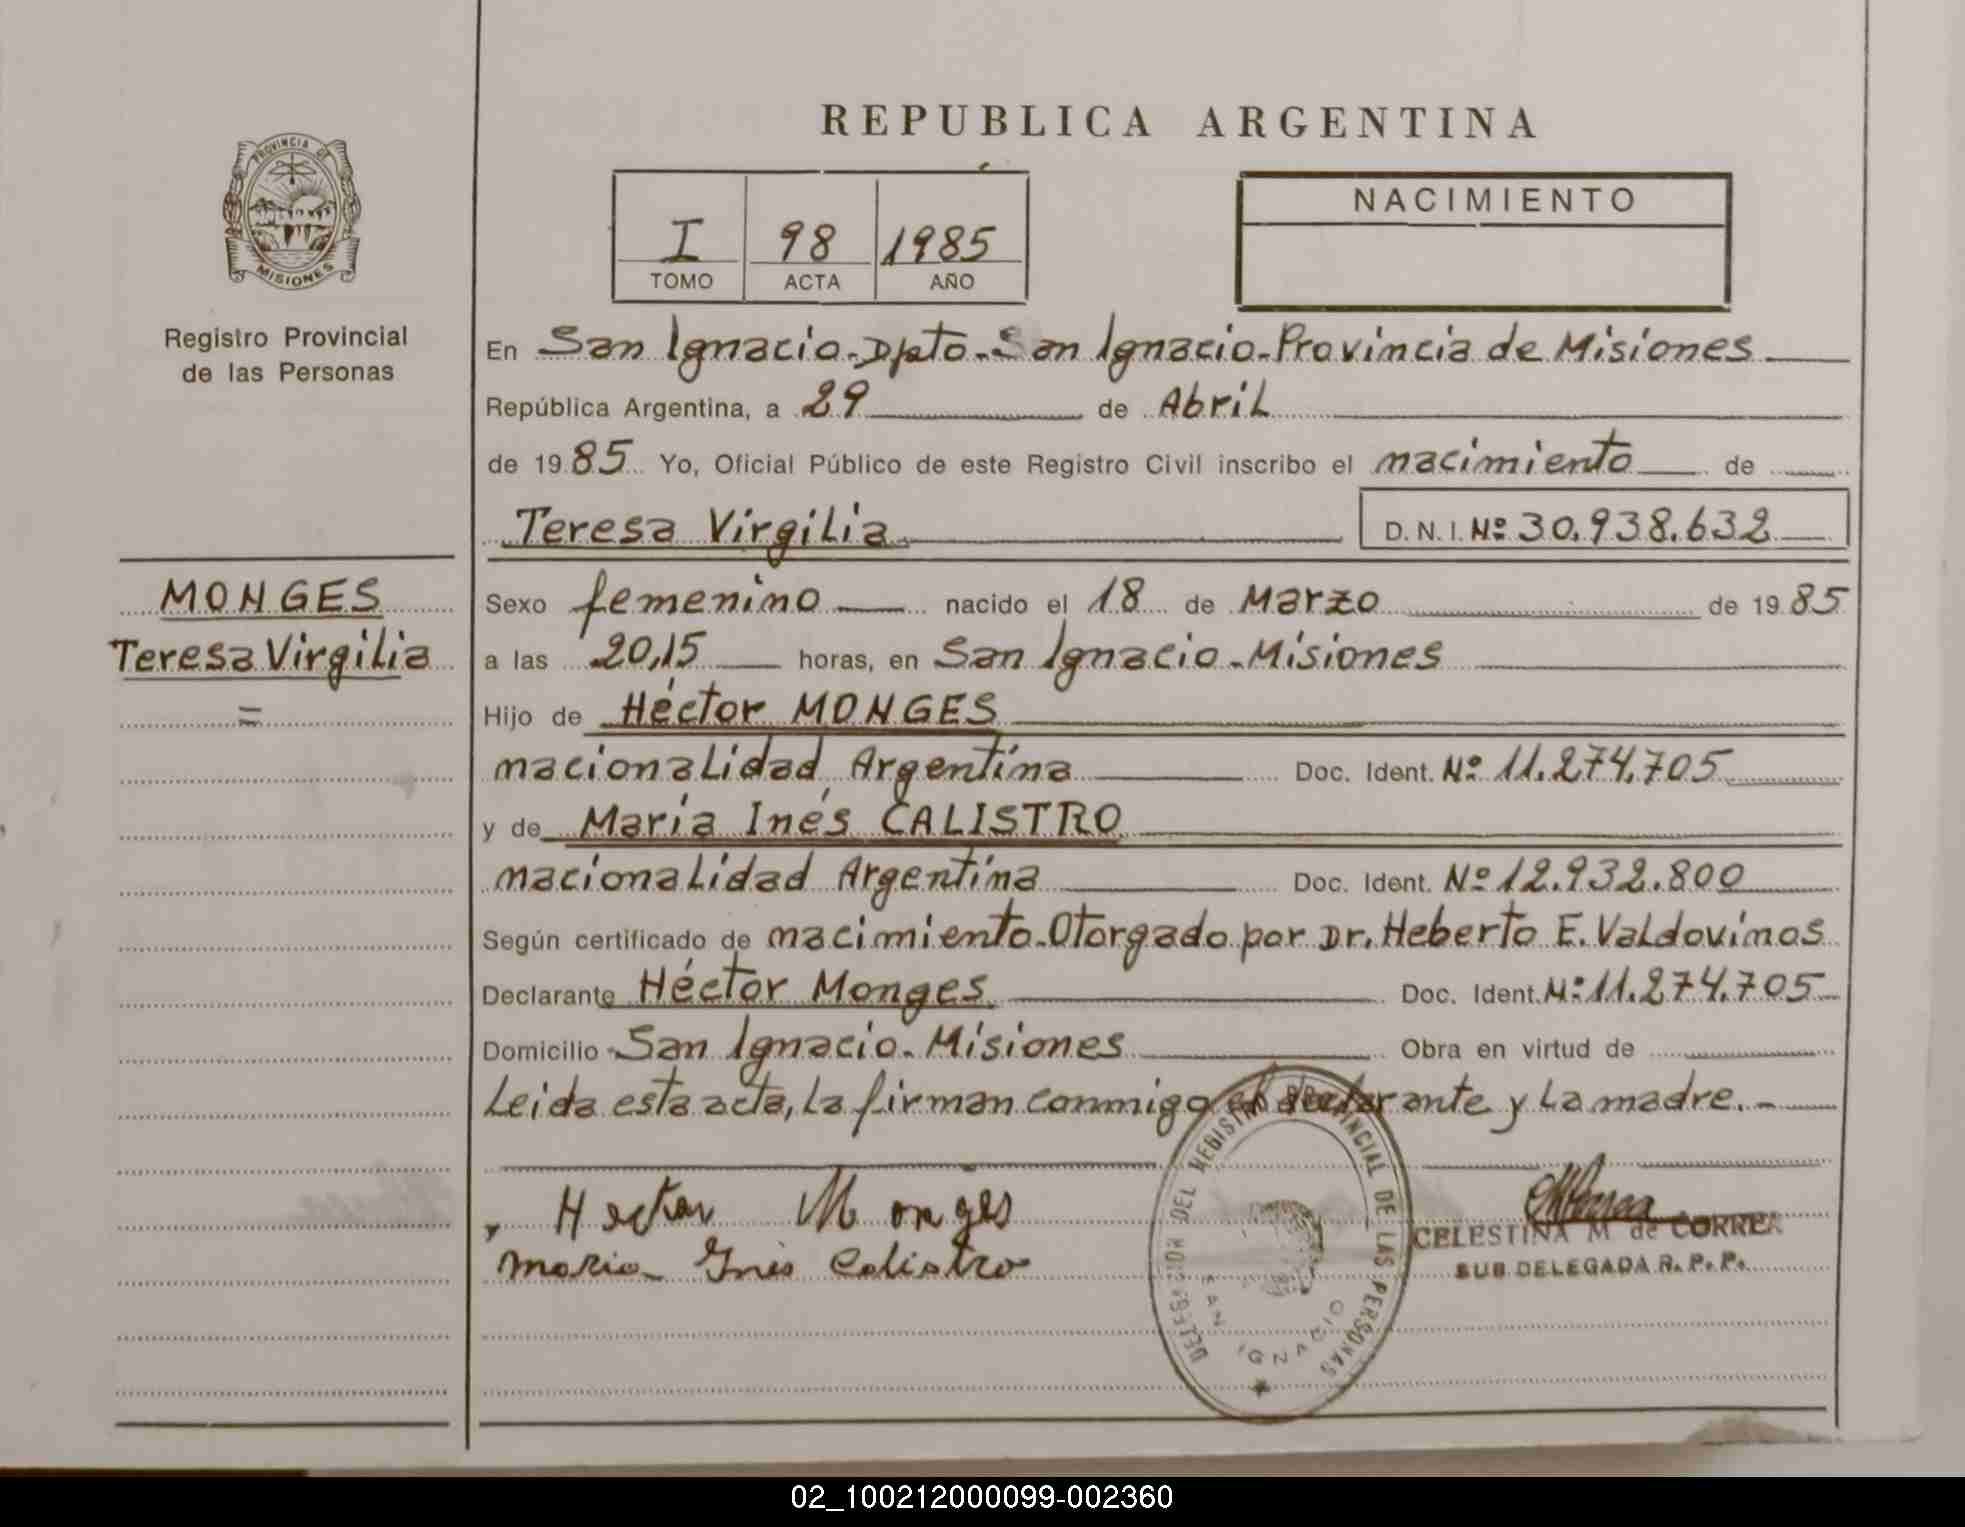 REPUBLICA ARGENTINA
PROVINCIA DE
MISIONES
Registro Provincial
de las Personas
I 98 1985
TOMO ACTA AÑO
NACIMIENTO
En San Ignacio-Dpto-San Ignacio-Provincia de Misiones
República Argentina, a 29 de Abril
de 1985 Yo, Oficial Público de este Registro Civil inscribo el nacimiento de
Teresa Virgilia D.N.I. Nº 30.938.632
MONGES
Teresa Virgilia
=
Sexo femenino nacido el 18 de Marzo de 1985
a las 20,15 horas, en San Ignacio-Misiones
Hijo de Héctor MONGES
nacionalidad Argentina Doc. Ident. Nº 11.274.705
y de María Inés CALISTRO
nacionalidad Argentina Doc. Ident. Nº 12.932.800
Según certificado de nacimiento-Otorgado por Dr. Heberto E. Valdovinos
Declarante Héctor Monges Doc. Ident. Nº 11.274.705
Domicilio San Ignacio-Misiones Obra en virtud de
Leida esta acta, la firman conmigo el declarante y la madre.-
Hector Monges
Maria Inés Calistro
DELEGACION DEL REGISTRO PROVINCIAL DE LAS PERSONAS
SAN IGNACIO
CELESTINA M de CORREA
SUB DELEGADA R. P. P.
02_100212000099-002360